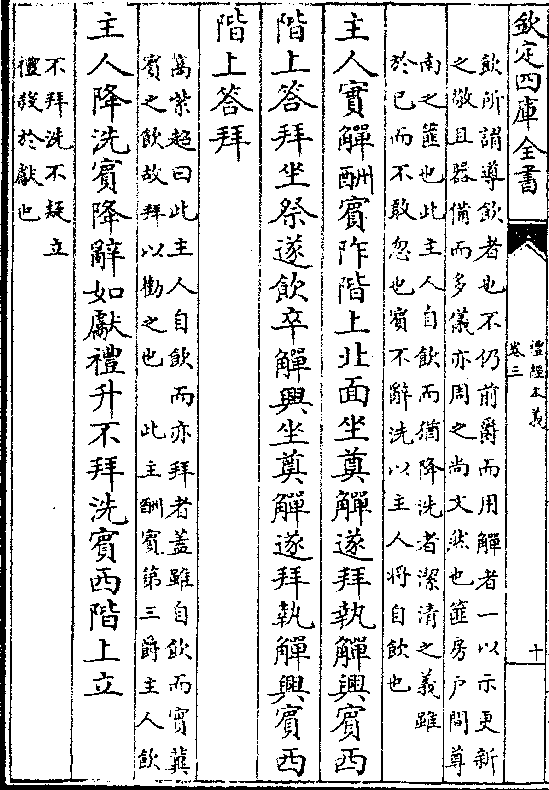 欽定四庫全書
禮經本義
卷三
十
飲所謂導飲者也不仍前爵而用觶者一以示更新
之敬且器備而多儀亦周之尚文然也篚房戶間尊
南之篚也此主人自飲而猶降洗者潔清之義雖
於已而不敢忽也賓不辭洗以主人將自飲也
主人實觶酬賓阼階上北面坐奠觶遂拜執觶興賓西
階上答拜坐祭遂飲卒觶興坐奠觶遂拜執觶興賓西
階上答拜
萬紫超曰此主人自飲而亦拜者盖雖自飲而實蘄
賓之飲故拜以勸之也 此主酬賓第三爵主人飲
主人降洗賓降辭如獻禮升不拜洗賓西階上立
不拜洗不疑立
禮殺於獻也